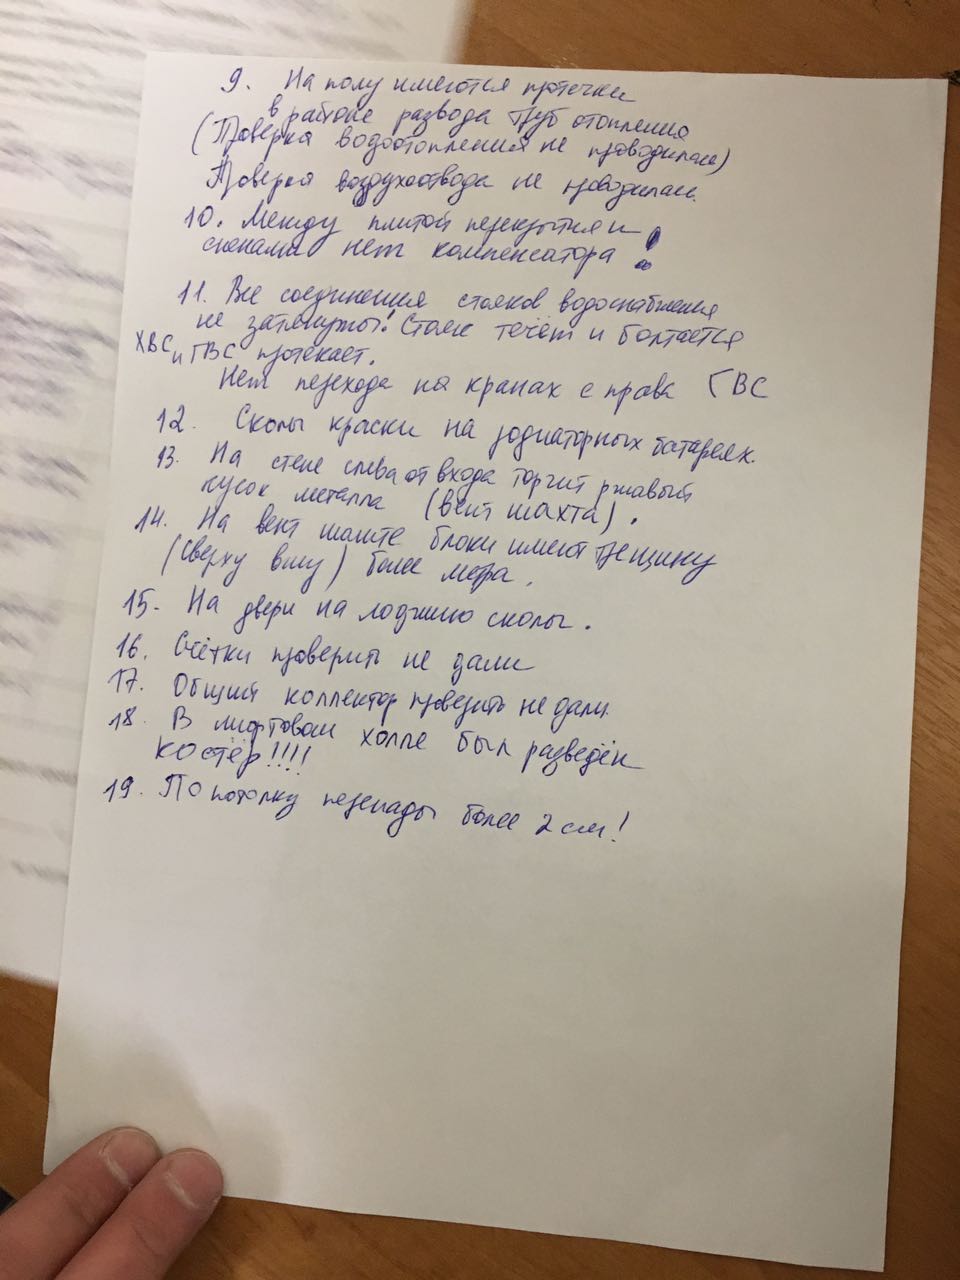 9. На полу имеются протечки
в районе развода труб отопления
(Проверка водоотопления не проводилась)
Проверка воздухоотвода не проводилась.
10. Между плитой перекрытия и
стенами нет компенсатора!
11. Все соединения стояков водоснабжения
не затянуты! Стояк течёт и болтается
ХВС и ГВС протекает.
Нет перехода на кранах с права ГВС
12. Сколы краски на радиаторных батареях.
13. На стене слева от входа торчит ржавый
кусок металла (вент шахта).
14. На вент шахте блоки имеют трещину
(сверху вниз) более метра.
15. На двери на лоджию сколы.
16. Счётки проверить не дали
17. Общий коллектор проверить не дали.
18. В лифтовом холле был разведён
костёр!!!!
19. По потолку перепады более 2 см!